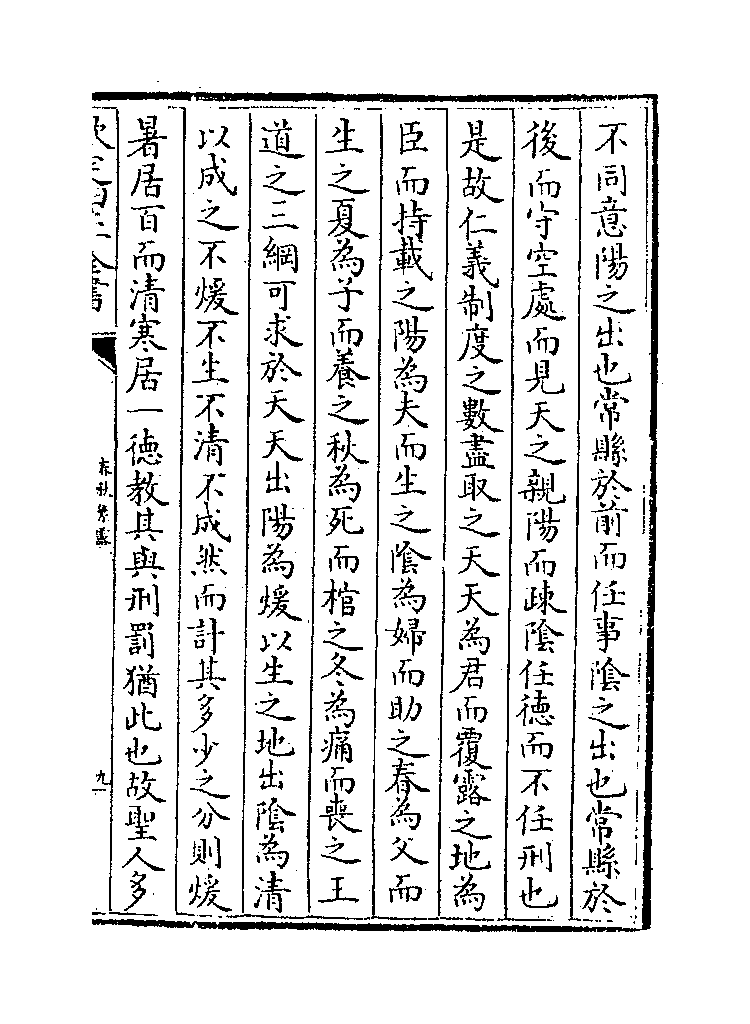 不同意陽之出也常縣於前而任事陰之出也常縣於
後而守空處而見天之親陽而疎陰任徳而不任刑也
是故仁義制度之數盡取之天天為君而覆露之地為
臣而持載之陽為夫而生之陰為婦而助之春為父而
生之夏為子而養之秋為死而棺之冬為痛而喪之王
道之三綱可求於天天出陽為煖以生之地出陰為清
以成之不煖不生不清不成然而計其多少之分則煖
暑居百而清寒居一徳教其與刑罰猶此也故聖人多
欽定四庫全書
春秋繁露
九